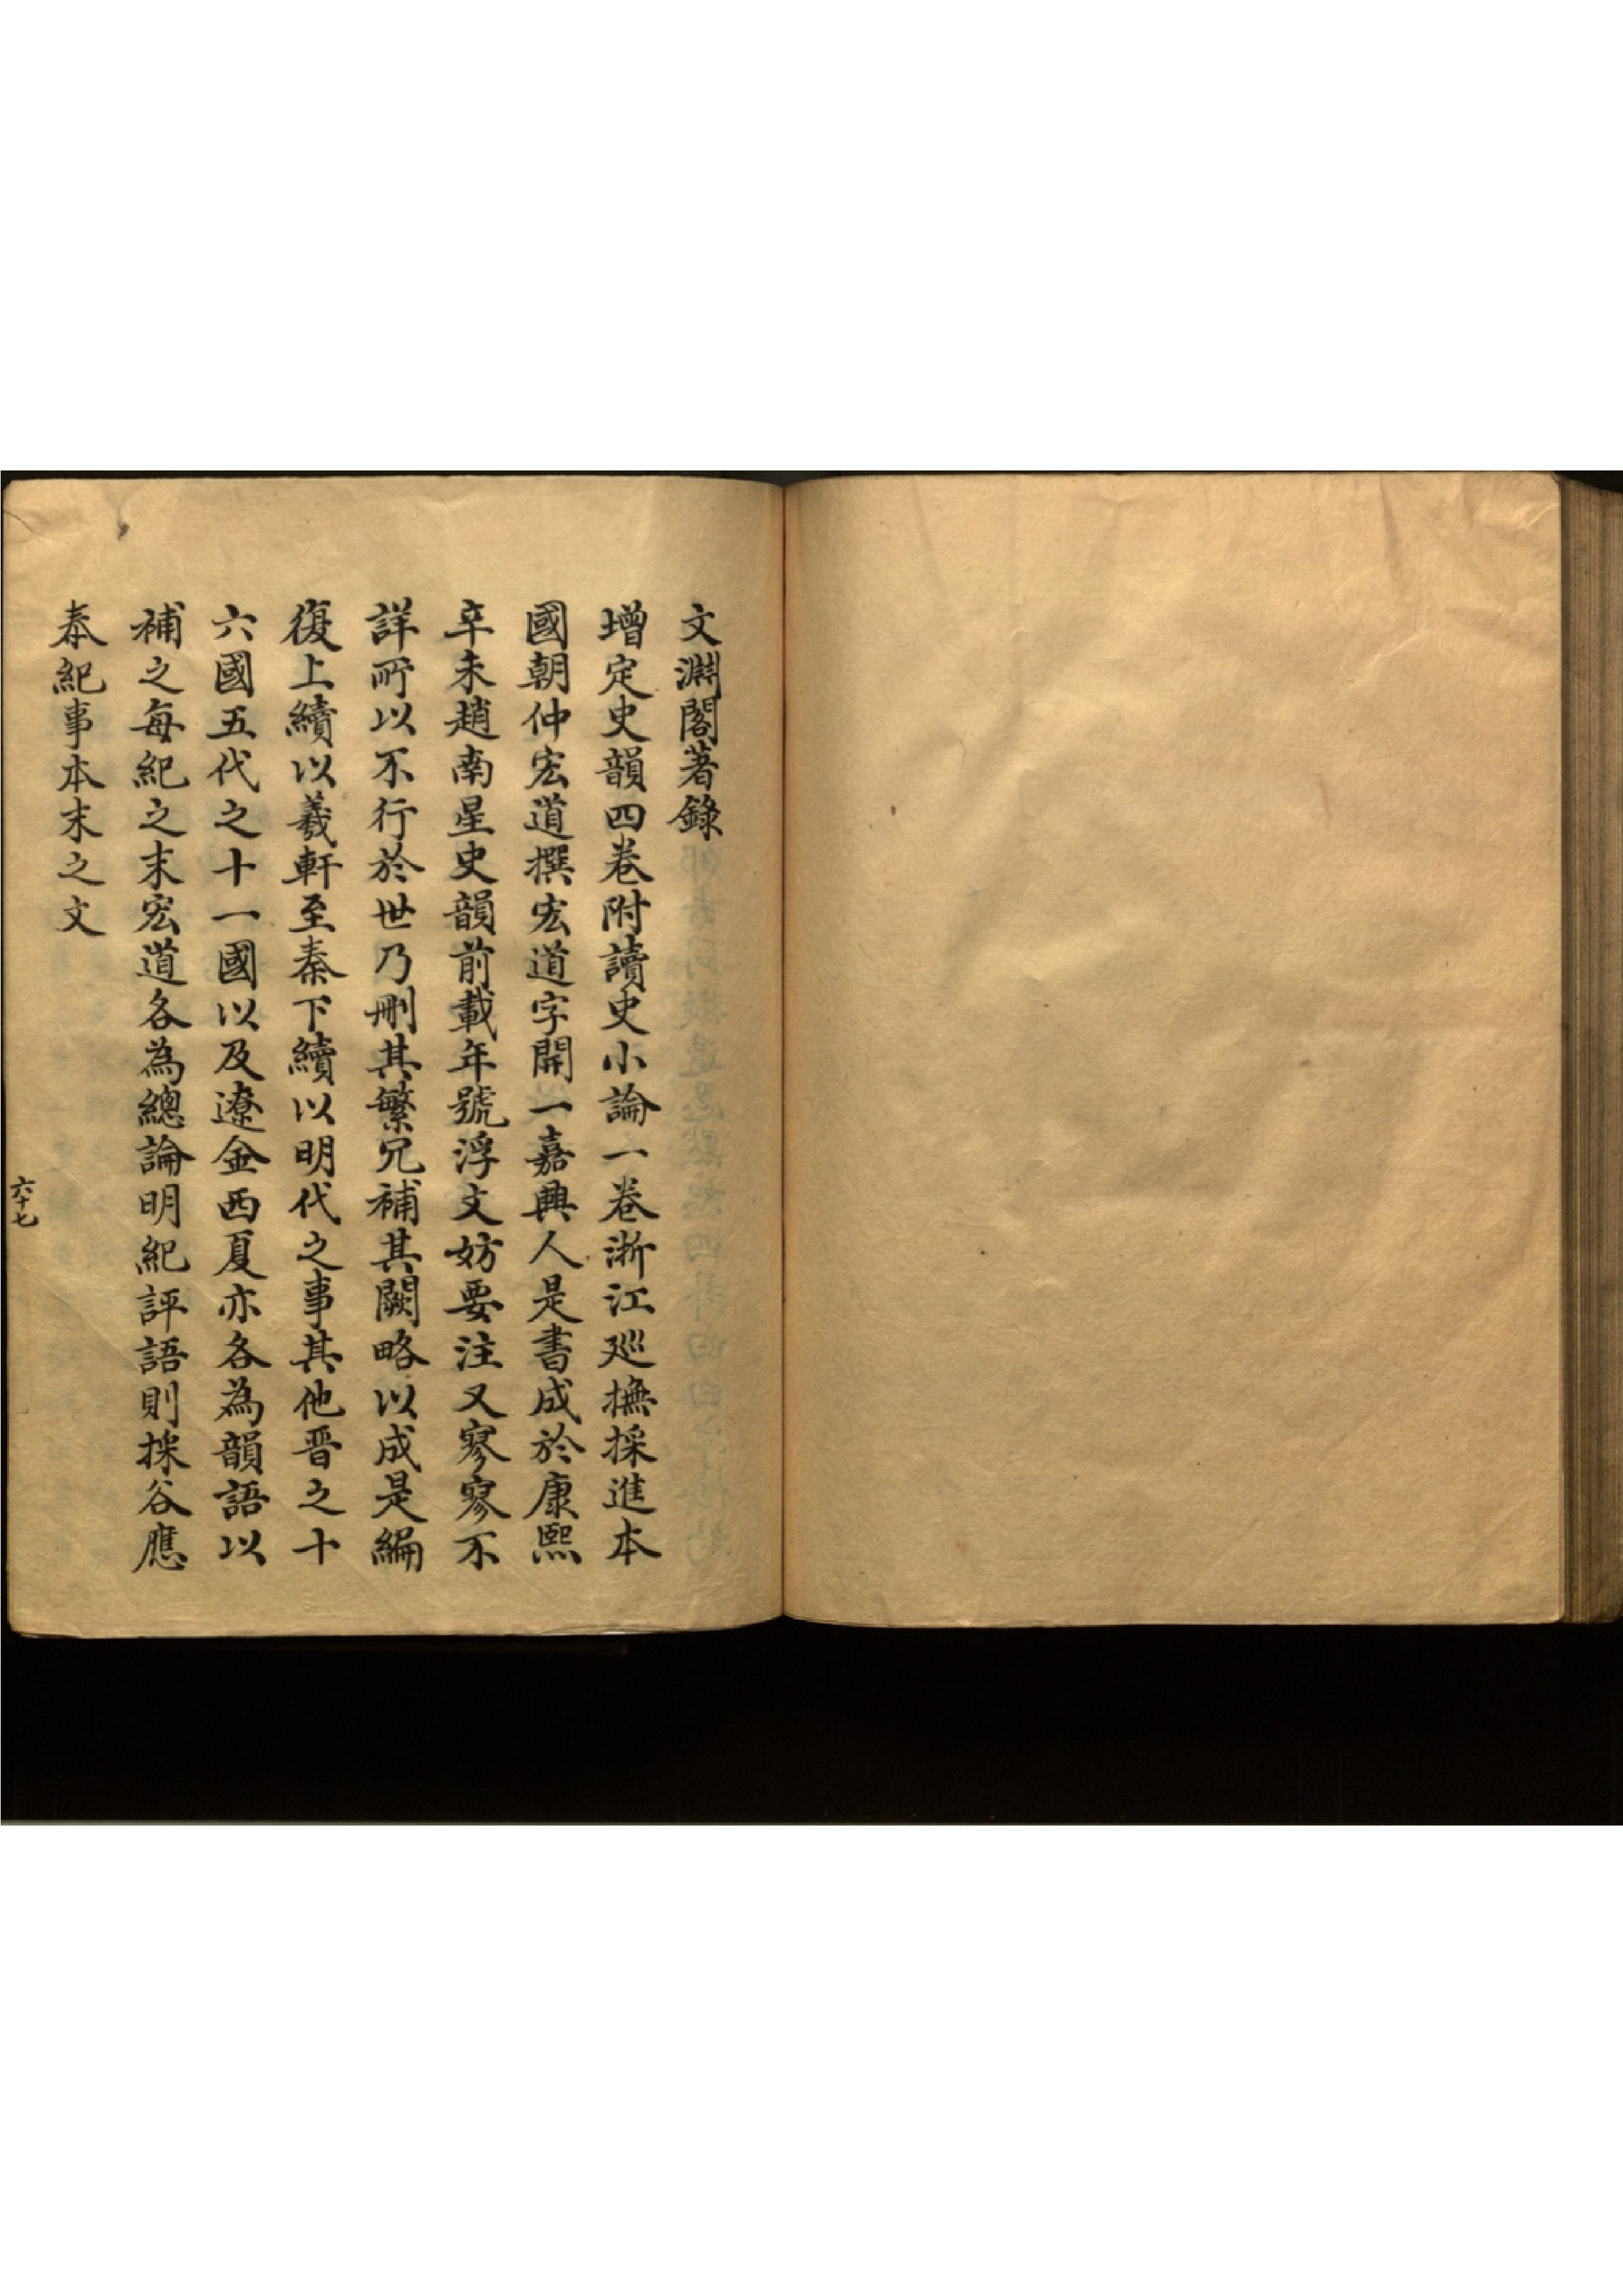 文淵閣著錄
增定史韻四卷附讀史小論一卷浙江廵撫採進本
國朝仲宏道撰宏道字開一嘉興人是書成於康熙
辛未趙南星史韻前載年號浮文妨要注又寥寥不
詳所以不行於世乃刪其繁冗補其闕略以成是編
復上續以羲軒至秦下續以明代之事其他晋之十
六國五代之十一國以及遼金西夏亦各為韻語以
補之每紀之末宏道各為總論明紀評語則採谷應
泰紀事本末之文
六十七